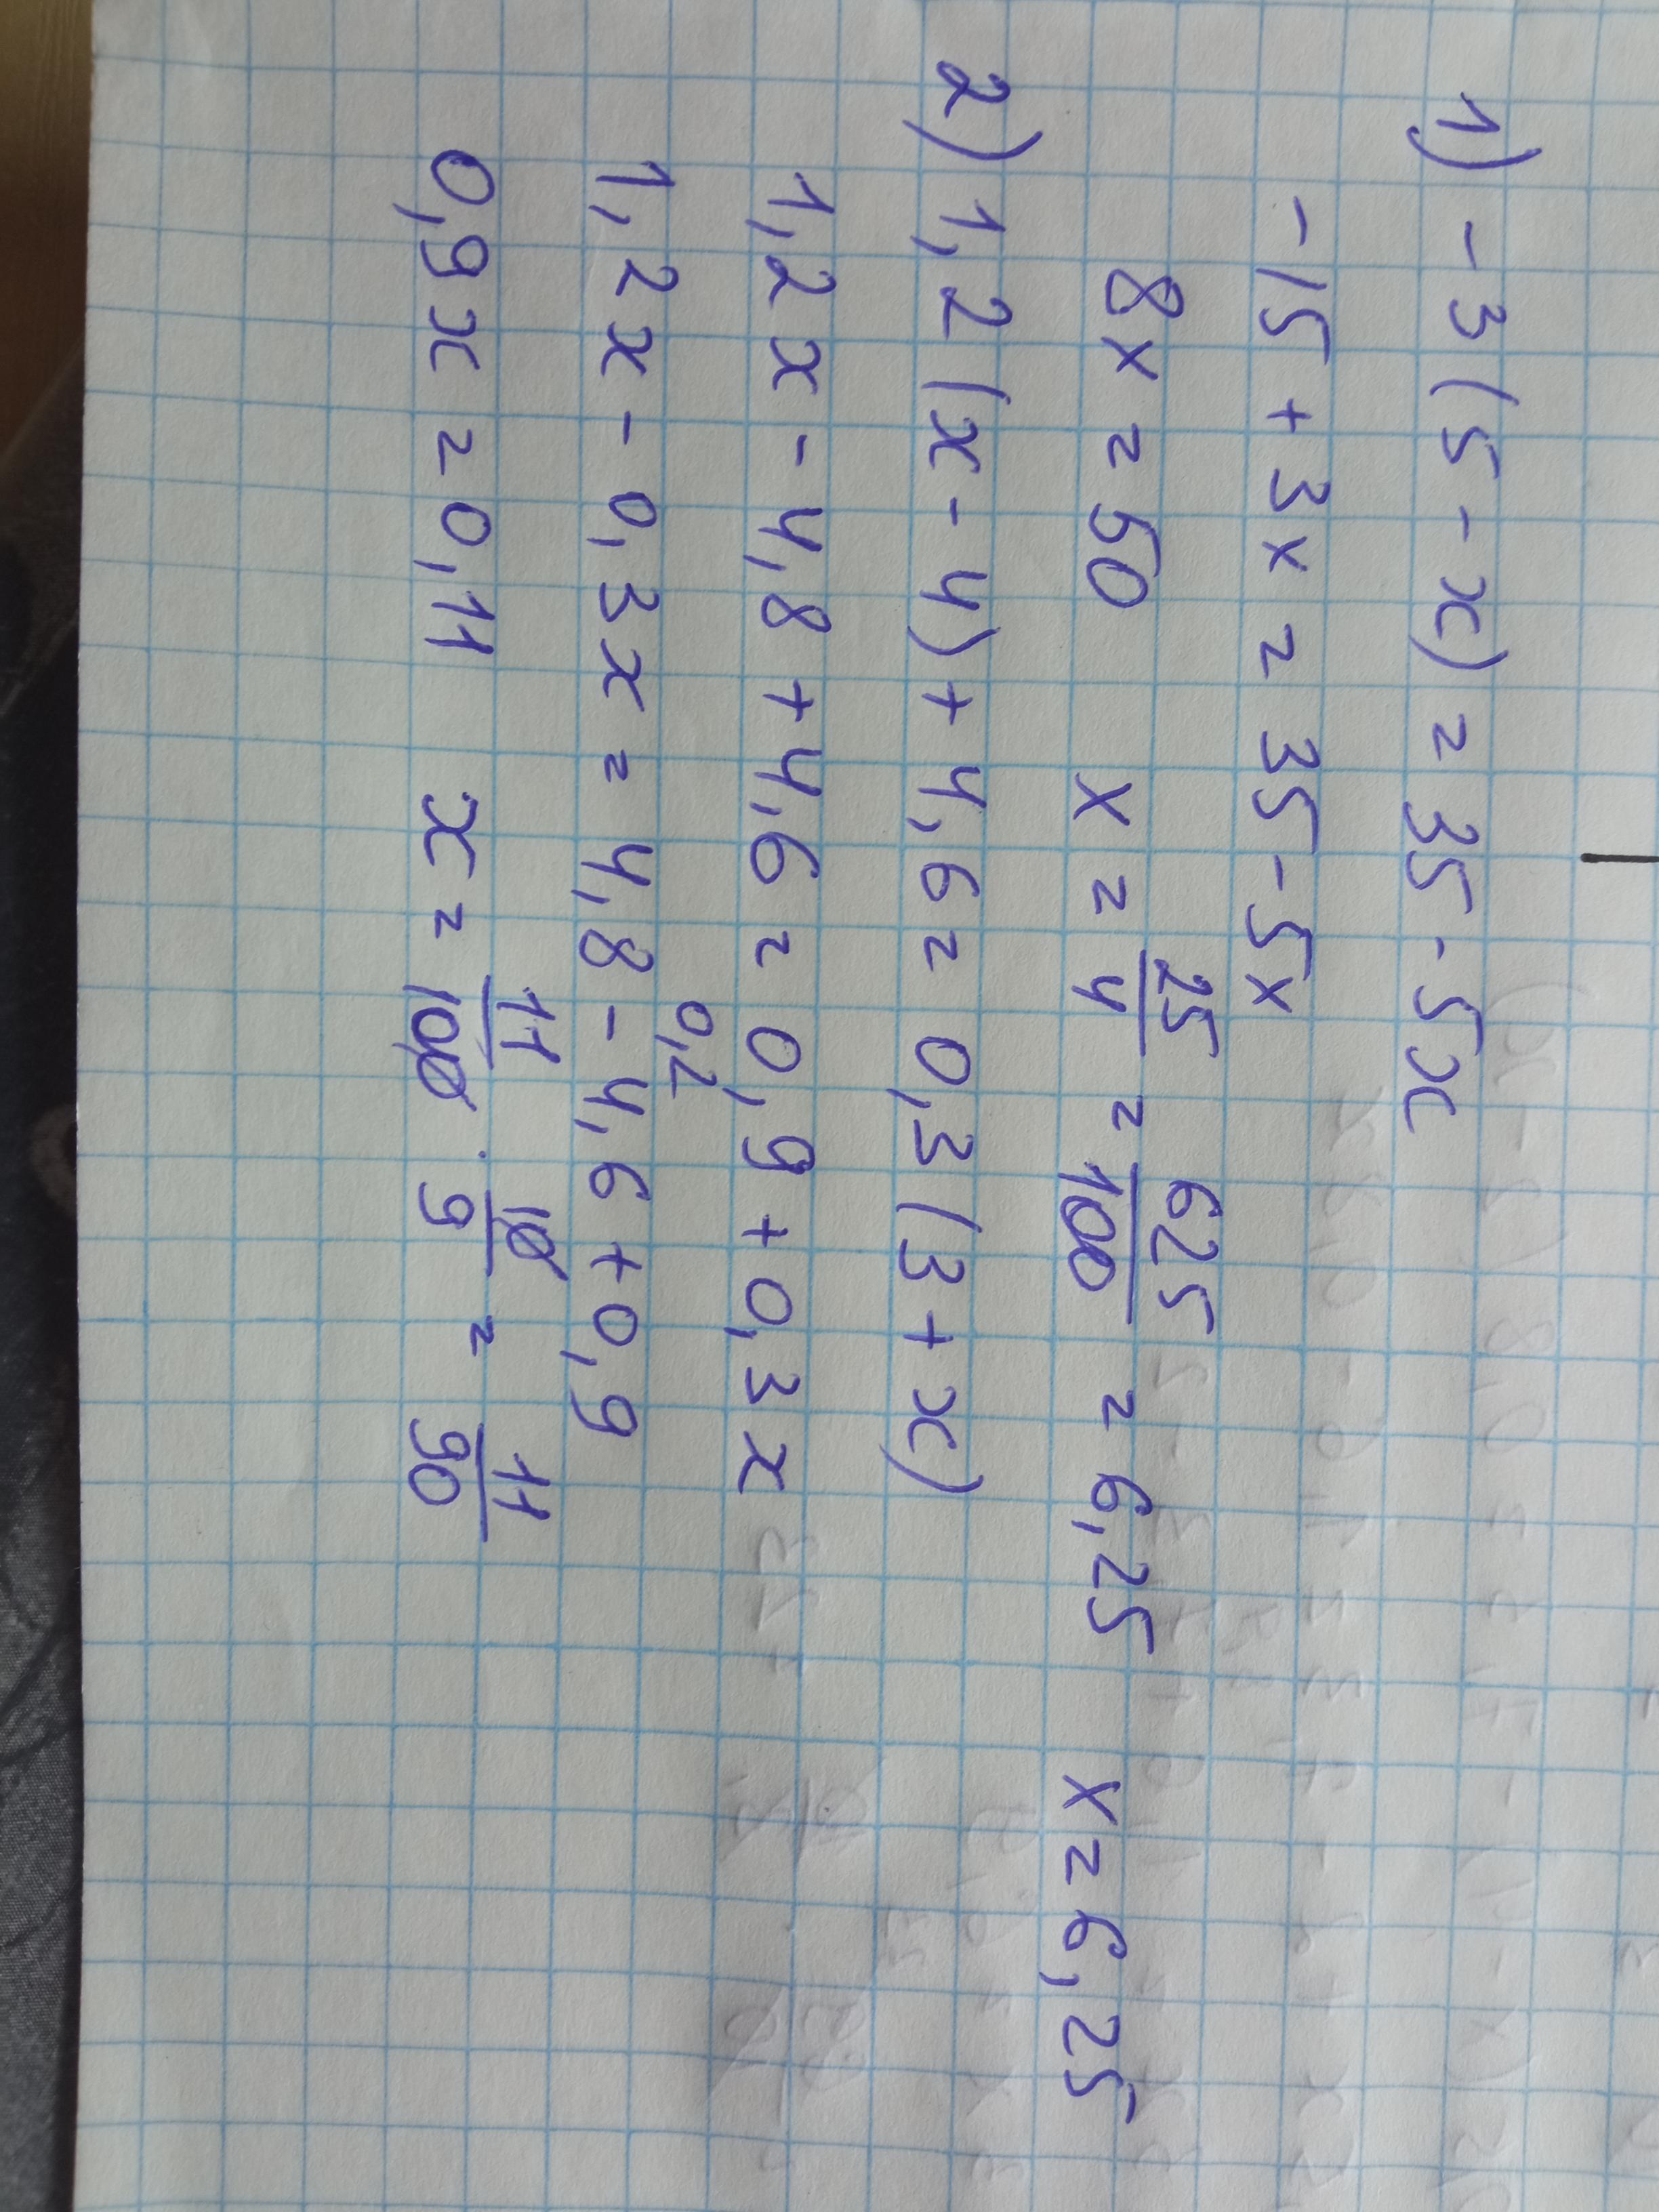 1) -3(5-x)=35-5x
-15+3x=35-5x
8x=50 x=25/4=625/100=6,25 x=6,25
2) 1,2(x-4)+4,6=0,3(3+x)
1,2x-4,8+4,6=0,9+0,3x
0,2
1,2x-0,3x=4,8-4,6+0,9
0,9x=0,11 x=11/100·10/9=11/90